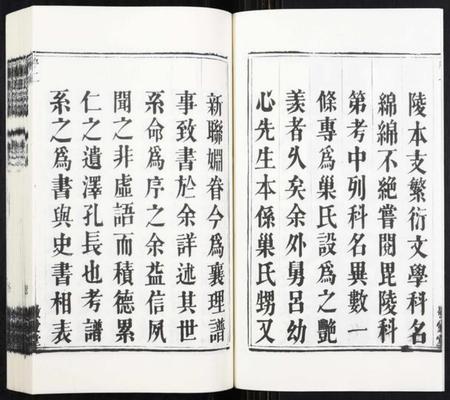 陵本支繁衍文學科名
綿綿不絶嘗閱毘陵科
第考中列科名異數一
條專爲巢氏設爲之艷
羨者久矣余外舅呂幼
心先生本係巢氏甥又
新聯婣眷今爲襄理譜
事致書於余詳述其世
系命爲序之余益信夙
聞之非虛語而積德累
仁之遺澤孔長也考譜
系之爲書與史書相表